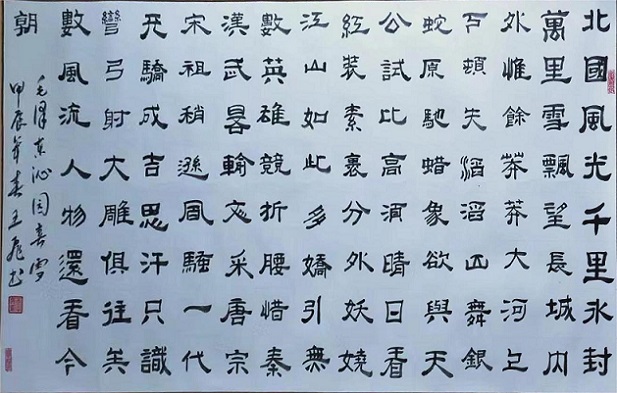 北國風光千里冰封
萬里雪飄望長城内
外惟餘莽莽大河上
下頓失滔滔山舞銀
蛇原馳蜡象欲與天
公試比高須晴日看
紅裝素裹分外妖嬈
江山如此多嬌引無
數英雄競折腰惜秦
漢武畧輸文采唐宗
宋祖稍遜風騷一代
天驕成吉思汗只識
彎弓射大雕俱往矣
數風流人物還看今
朝
毛澤東沁园春雪
甲辰年春王书